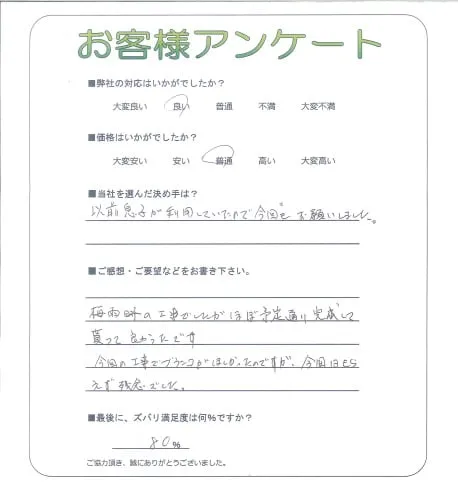 お客様アンケート
■弊社の対応はいかがでしたか？
大変良い 良い 普通 不満 大変不満
■価格はいかがでしたか？
大変安い 安い 普通 高い 大変高い
■当社を選んだ決め手は？
以前息子が利用していたので今回も お願いしました。
■ご感想・ご要望などをお書き下さい。
梅雨時の工事でしたがほぼ予定通り完成して
貰って良かったです
今回の工事でブランコがほしかったのですが、今回はもら
えず残念でした。
■最後に、ズバリ満足度は何％ですか？
80%
ご協力頂き、誠にありがとうございました。